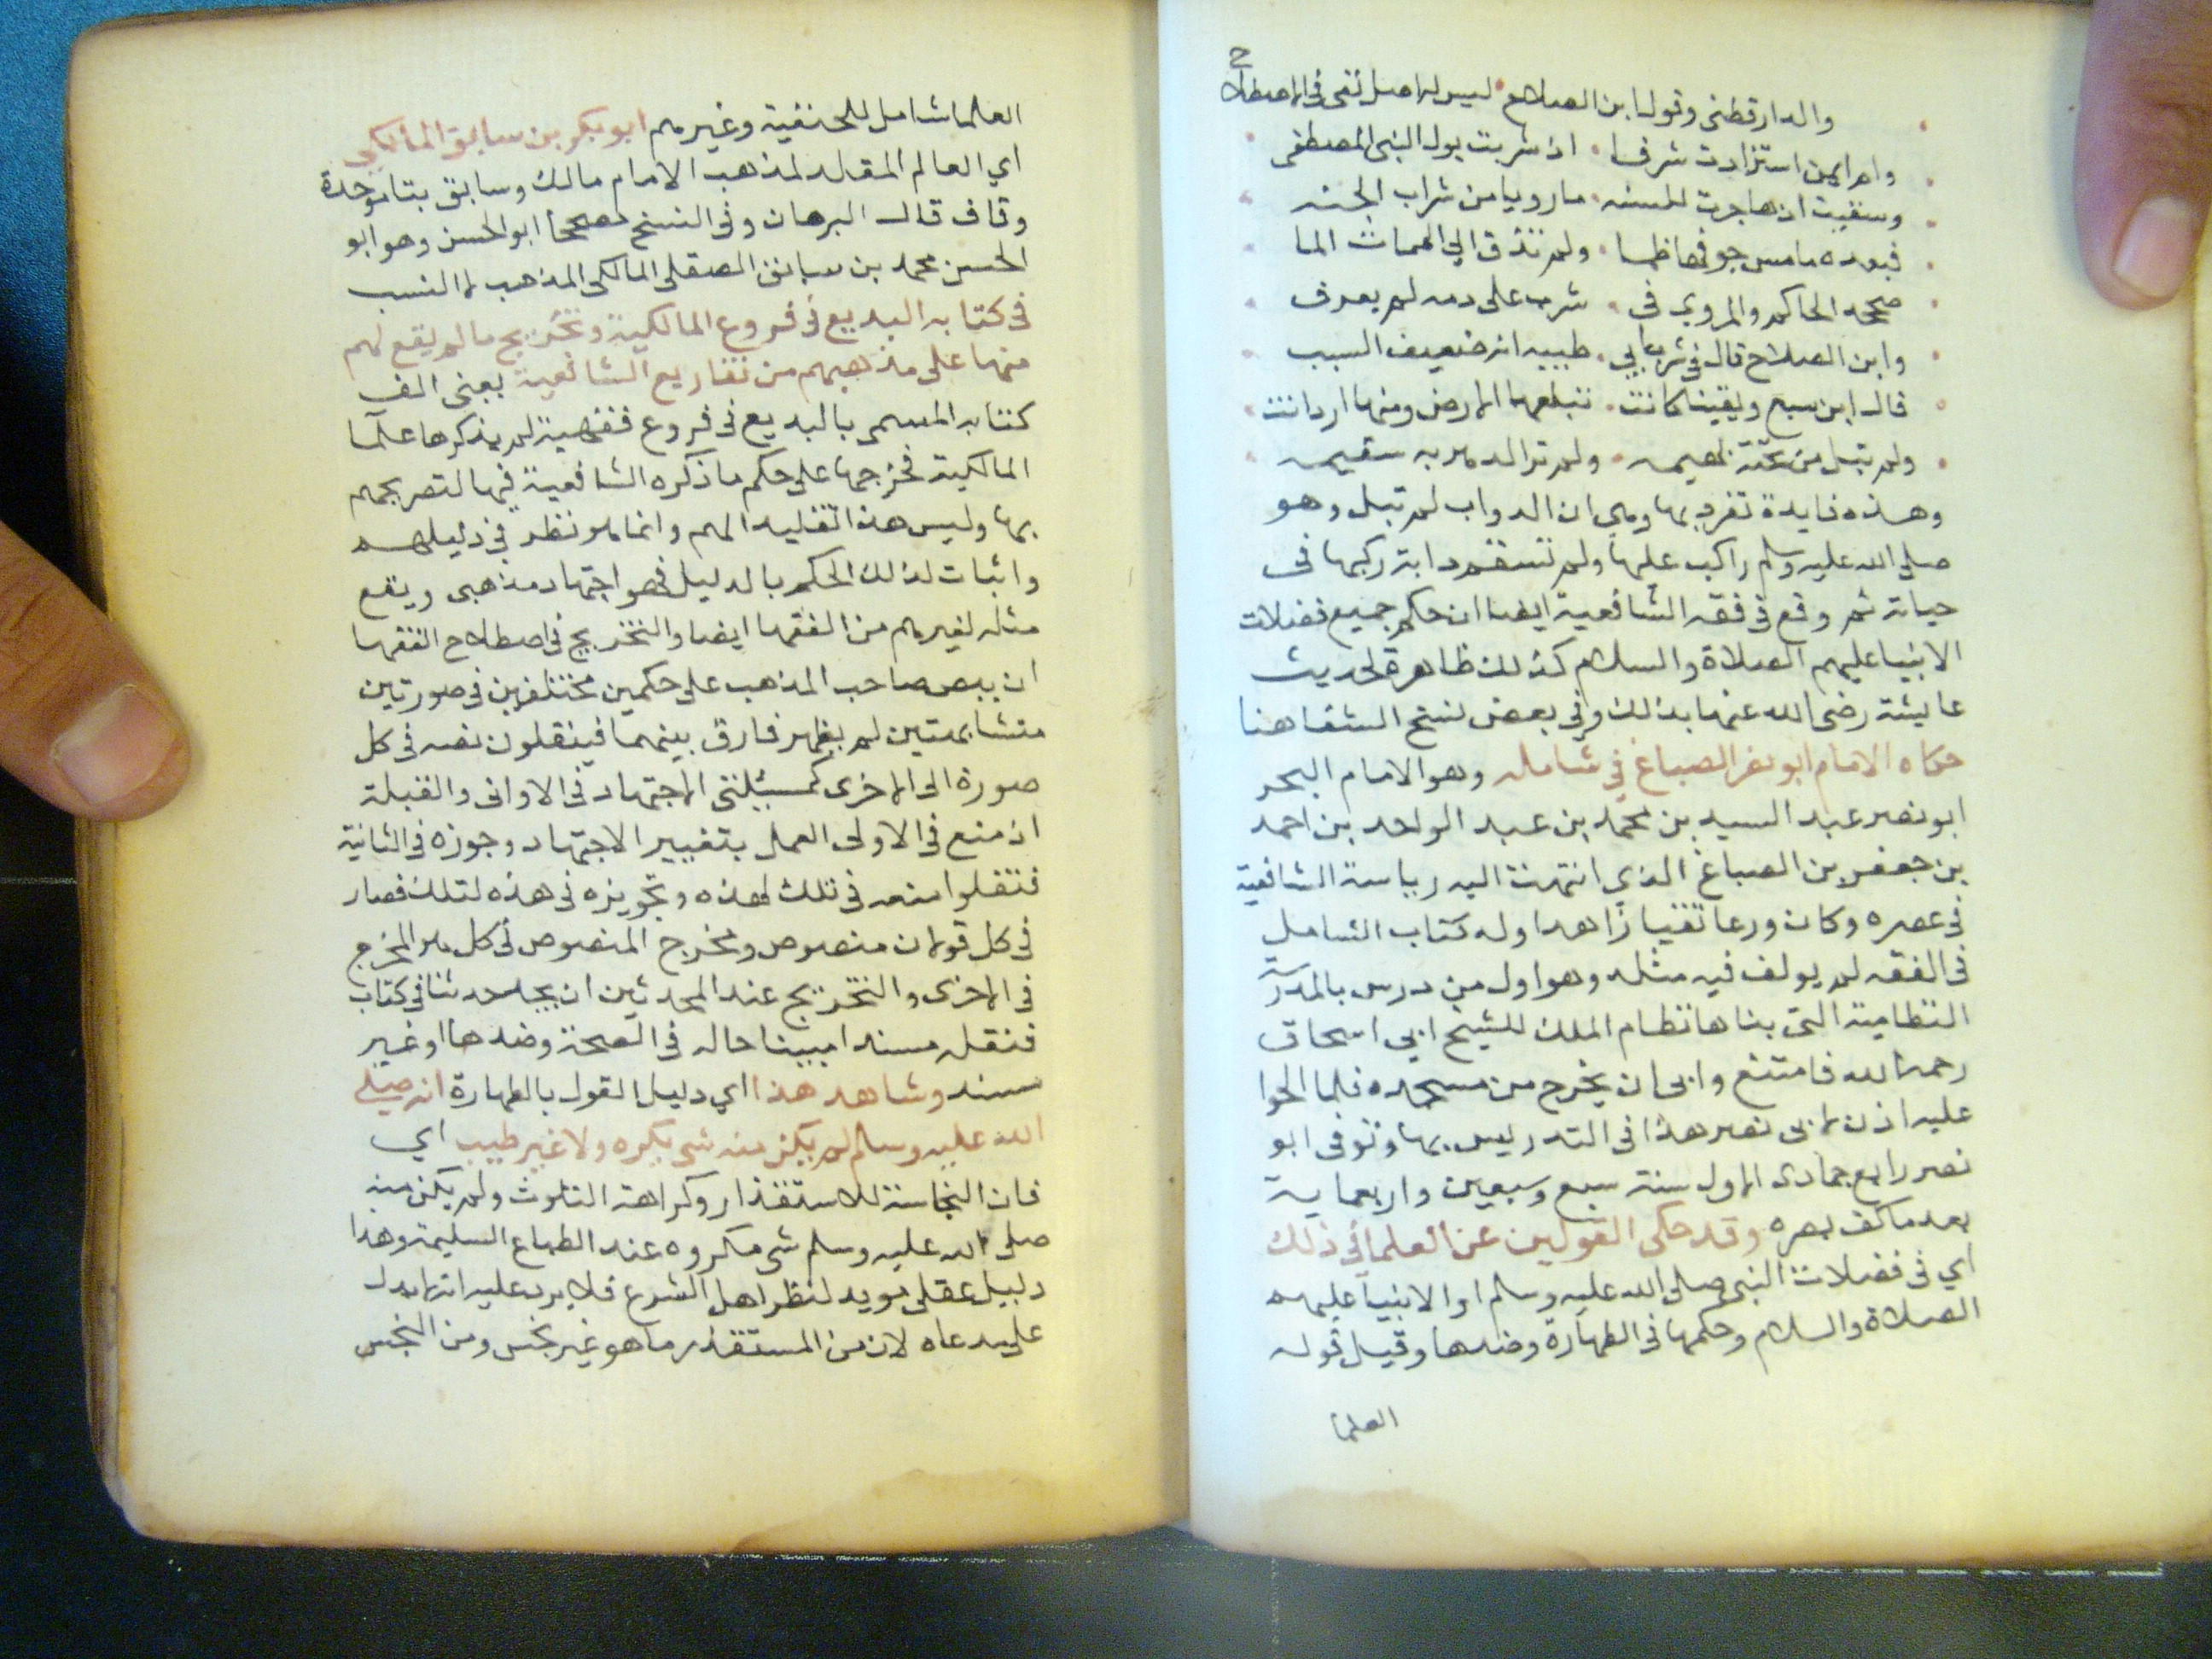 والدارقطنى وقول ابن الصلاح ليس له اصل نفى فى الاصطلاح
وام ايمن استزادت شرفا اذ شربت بول النبى المصطفى
وسقيت اذ هاجرت للسنه ماروبا من شراب الجنه
فبعده مامس جوفها ظما ولم تذق الى الممات الما
صححه الحاكم والمروي فى شرب على دمه لم يعرف
وابن الصلاح قال فى شرب ابي طيبه انه ضعيف السبب
قال ابن سبع ويقينا كانت تبلعها الارض ومنها ازدانت
ولم تبل من تحته بهيمه ولم تزالدهر به سقيمه
وهذه فايدة تفرد بها وهي ان الدواب لم تبل وهو
صلى الله عليه وسلم راكب عليها ولم تسقم دابة ركبها فى
حياته ثم وقع فى فقه الشافعية ايضا ان حكم جميع فضلات
الانبيا عليهم الصلاة والسلام كذلك ظاهرة لحديث
عايشة رضى الله عنها بذلك وفي بعض نسخ الشفا هنا
حكاه الامام ابو نصر الصباغ في شامله وهو الامام البحر
ابو نصر عبد السيد بن محمد بن عبد الواحد بن احمد
بن جعفر بن الصباغ الذي انتهت اليه رياسة الشافعية
فى عصره وكان ورعا تقيا زاهدا وله كتاب الشامل
فى الفقه لم يولف فيه مثله وهو اول من درس بالمدرسة
النظامية التى بناها نظام الملك للشيخ ابى اسحاق
رحمه الله فامتنع وابى ان يخرج من مسجده فلما الحوا
عليه اذن لابى نصر هذا فى التدريس بها وتوفى ابو
نصر رابع جمادى الاول سنة سبع وسبعين واربعماية
بعد ما كف بصره وقد حكى القولين عن العلما في ذلك
اي فى فضلات النبى صلى الله عليه وسلم او الانبيا عليهم
الصلاة والسلام وحكمها فى الطهارة وضدها وقيل قوله
العلما
العلما شامل للحنفية وغيرهم ابو بكر بن سابق المالكي
اي العالم المقلد لمذهب الامام مالك وسابق بتا موحدة
وقاف قال البرهان وفى النسخ مصححا ابو الحسن وهو ابو
الحسن محمد بن سابق الصقلى المالكى المذهب لا النسب
فى كتابه البديع فى فروع المالكية وتخريج ما لم يقع لهم
منها على مذهبهم من تفاريع الشافعية يعنى الف
كتابه المسمى بالبديع فى فروع فقهية لم يذكرها علما
المالكية فخرجها على حكم ما ذكره الشافعية فيها لتصريحهم
بها وليس هذا تقليد الهم وانما هو نظر في دليلهم
واثبات لذلك الحكم بالدليل فهو اجتهاد مذهبى ويقع
مثله لغيرهم من الفقها ايضا والتخريج فى اصطلاح الفقها
ان ينص صاحب المذهب على حكمين مختلفين فى صورتين
متشابهتين لم يظهر فارق بينهما فينقلون نصه فى كل
صورة الى الاخرى كمسئلتى الاجتهاد فى الاوانى والقبلة
اذ منع فى الاولى العمل بتغيير الاجتهاد وجوزه فى الثانية
فنقلوا منعه فى تلك لهذه وتجويزه فى هذه لتلك فصار
فى كل قولان منصوص ومخرج المنصوص فى كل هو المخرج
فى الاخرى والتخريج عند المحدثين ان يجد حديثا فى كتاب
فنقله مسندا مبينا حاله فى الصحة وضدها او غير
مسند وشاهد هذا اي دليل القول بالطهارة انه صلى
الله عليه وسلم لم يكن منه شى يكره ولا غير طيب اي
فان النجاسة للاستقذار وكراهة التلوث ولم يكن منه
صلى الله عليه وسلم شى مكروه عند الطباع السليمة وهذا
دليل عقلى مويد لنظر اهل الشرع فلا يرد عليه انه لا يدل
على مدعاه لان من المستقذر ما هو غير نجس ومن النجس